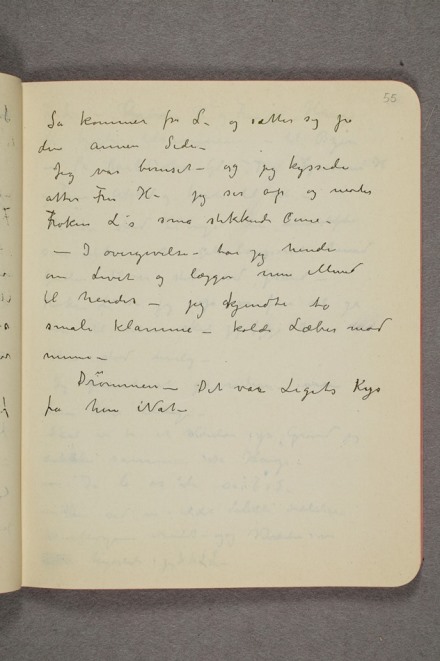 55
Så kommer frk L– og sætter sig på
den anden Side–
Jeg var beruset– og jeg kyssede
atter Fru H– jeg ser op og møder
Frøken L's små stikkende Øine–
– I overgivelse– tar jeg hende
om Livet og lægger min Mund
til hendes – jeg kjendte to
smale klamme – kolde Læber mod
mine–
Drømmen– Det var Ligets Kys
på hin iNat–